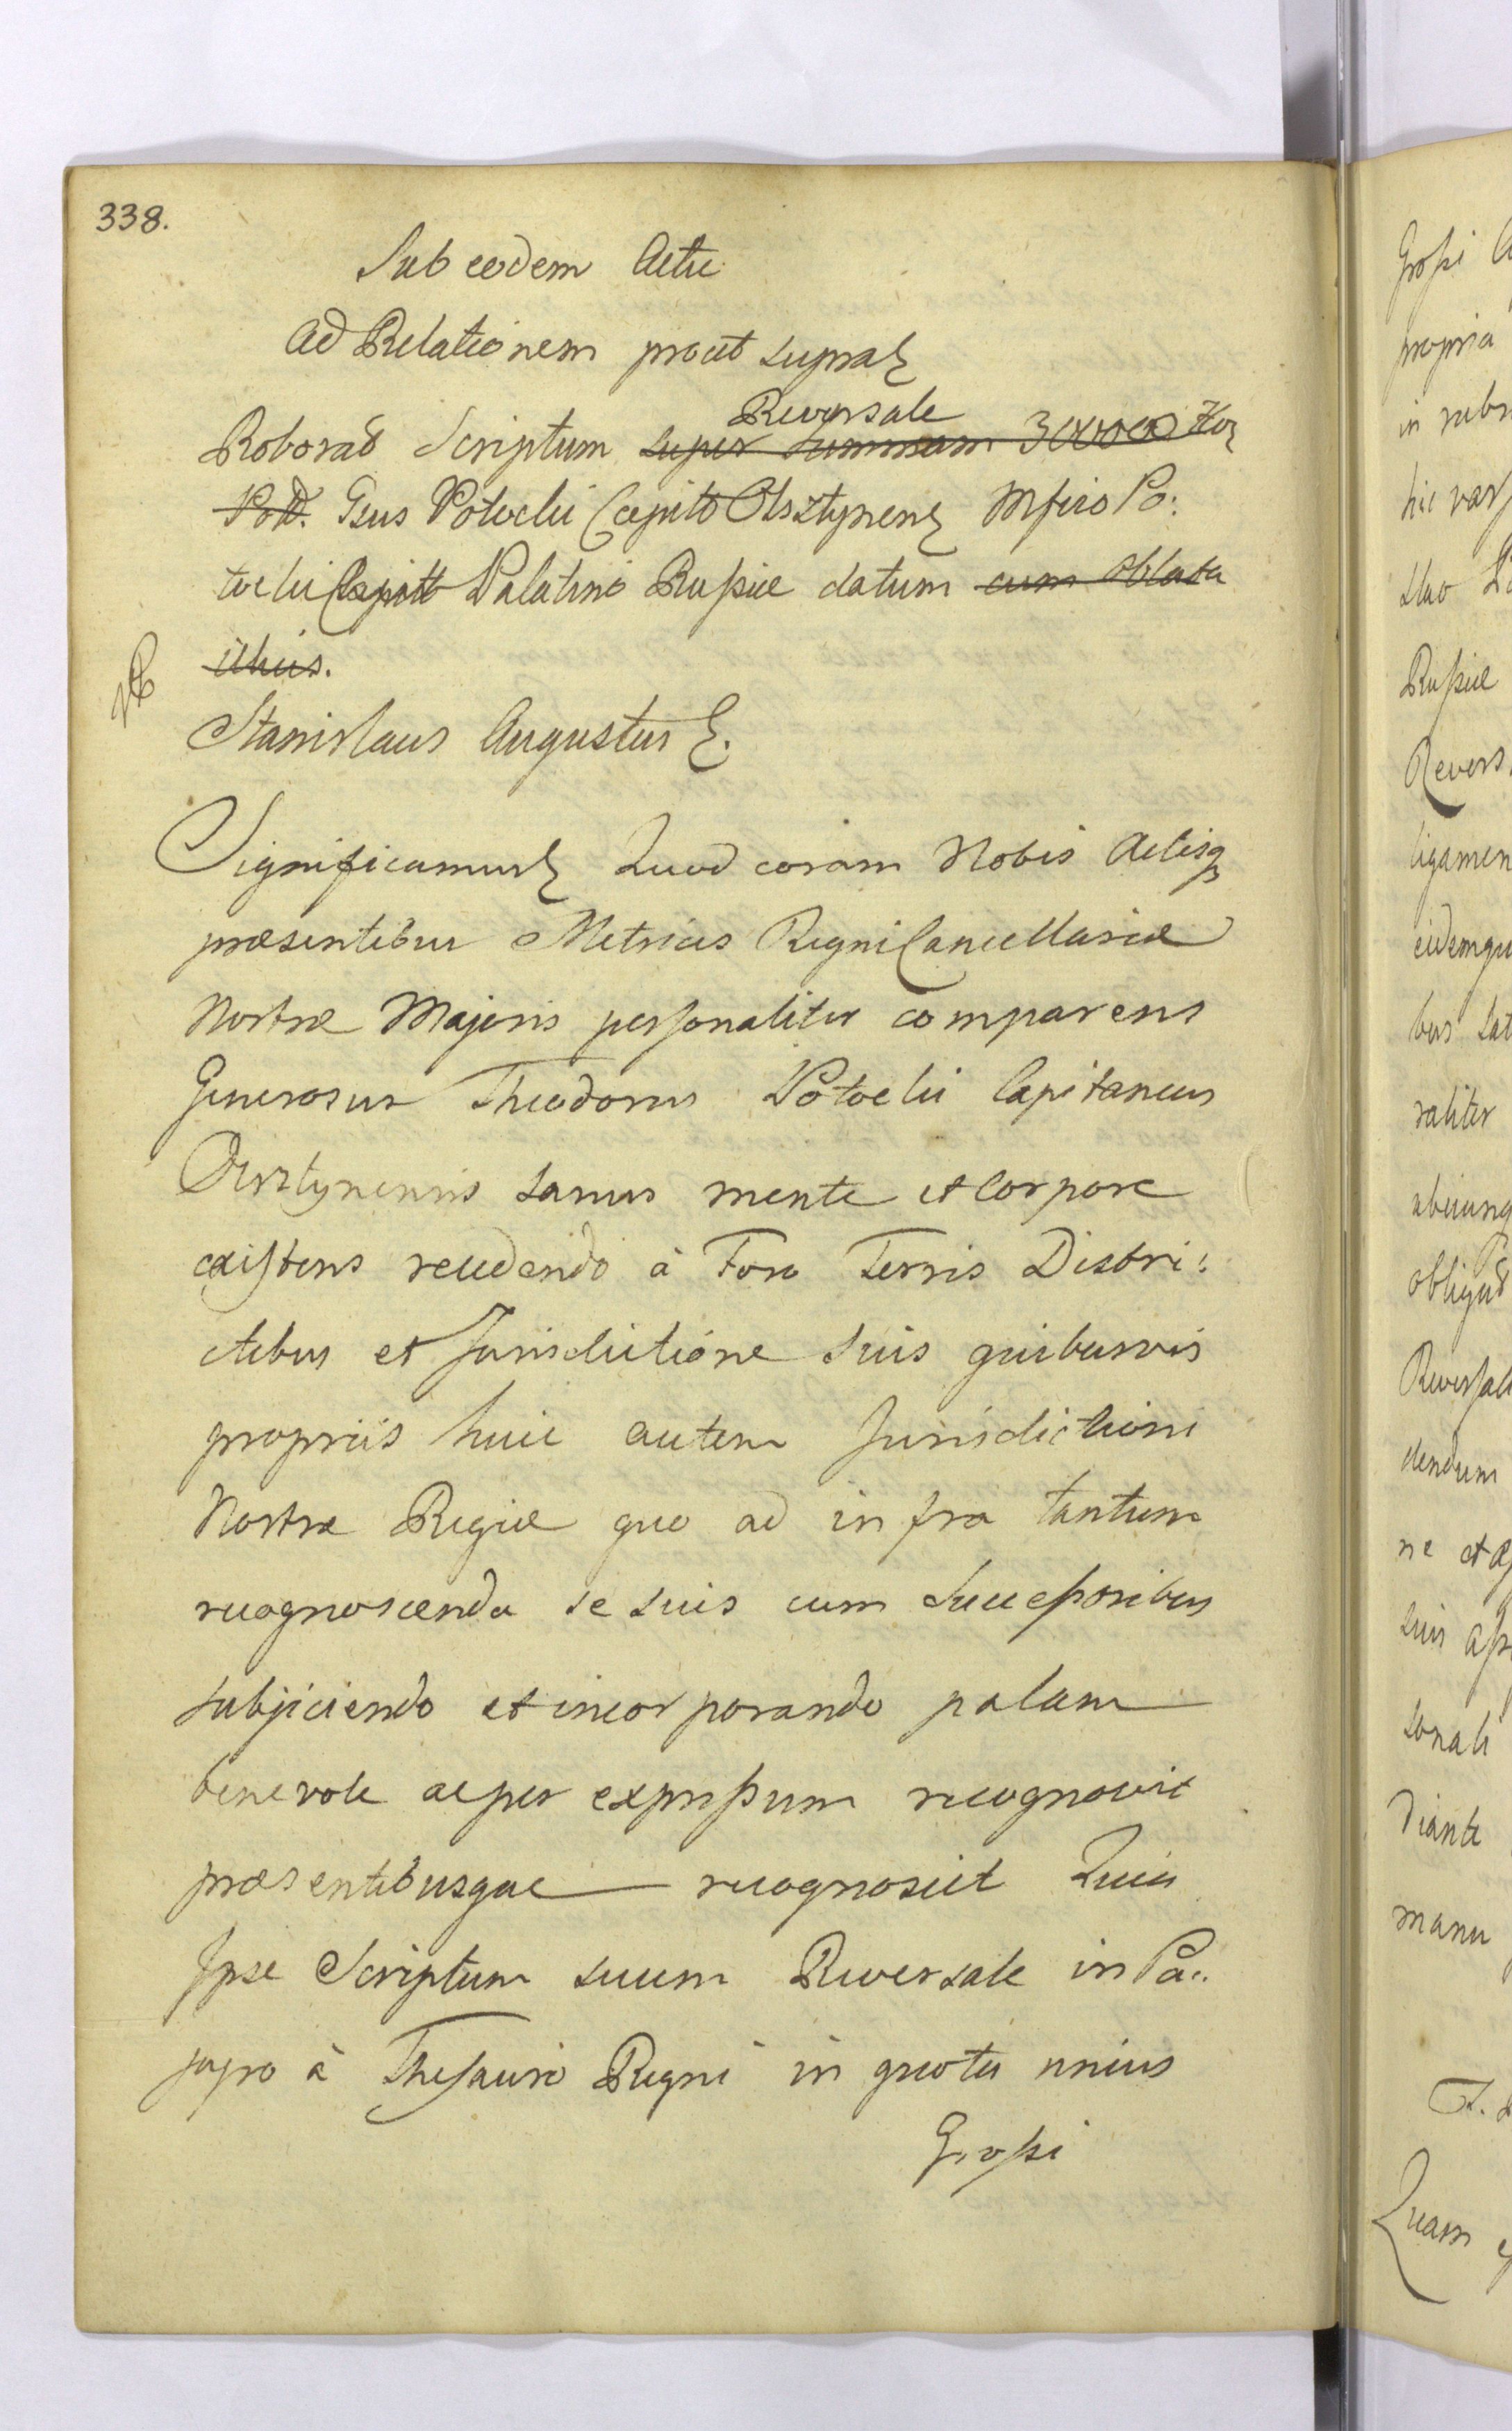 338.
Sub eodem Actu
Ad Relationem prout supra
Roborat Scriptum super summam 300000 Zor
Reversale
Poll. Gsus Potocki Capit Olsztynen Mfico Po:
tocki Capitt Palatino Russiæ datum cum Oblata
illius.
Stanislaus Augustus
Significamus Quod coram Nobis Actisq
præsentibus Metrices Regni Cancellariæ
Nostræ Majoris personaliter comparens
Generosus Theodorus Potocki Capitaneus
Olsztynensis sanus mente et Corpore
existens recedendo à Foro Terris Distri:
ctibus et Jurisdictione suis quibusvis
propriis huic autem Jurisdictioni
Nostræ Regiæ quo ad infra tantum
recognoscenda se suis cum Successoribus
subjiciendo et incorporando palam
benevole ac per expressum recognovit
præsentibusque recognoscit Quia
Ipse Scriptum suum Reversale in Pa:
pyro à Thesauro Regni in quota unius
Grossi
Grossi
propria
in
hic
suo
Russiæ
Revers
ligamen
eidemqu
bus
raliter
obligat
Reversal
dendum
ne
suis
sonali
diante
manu
Quam